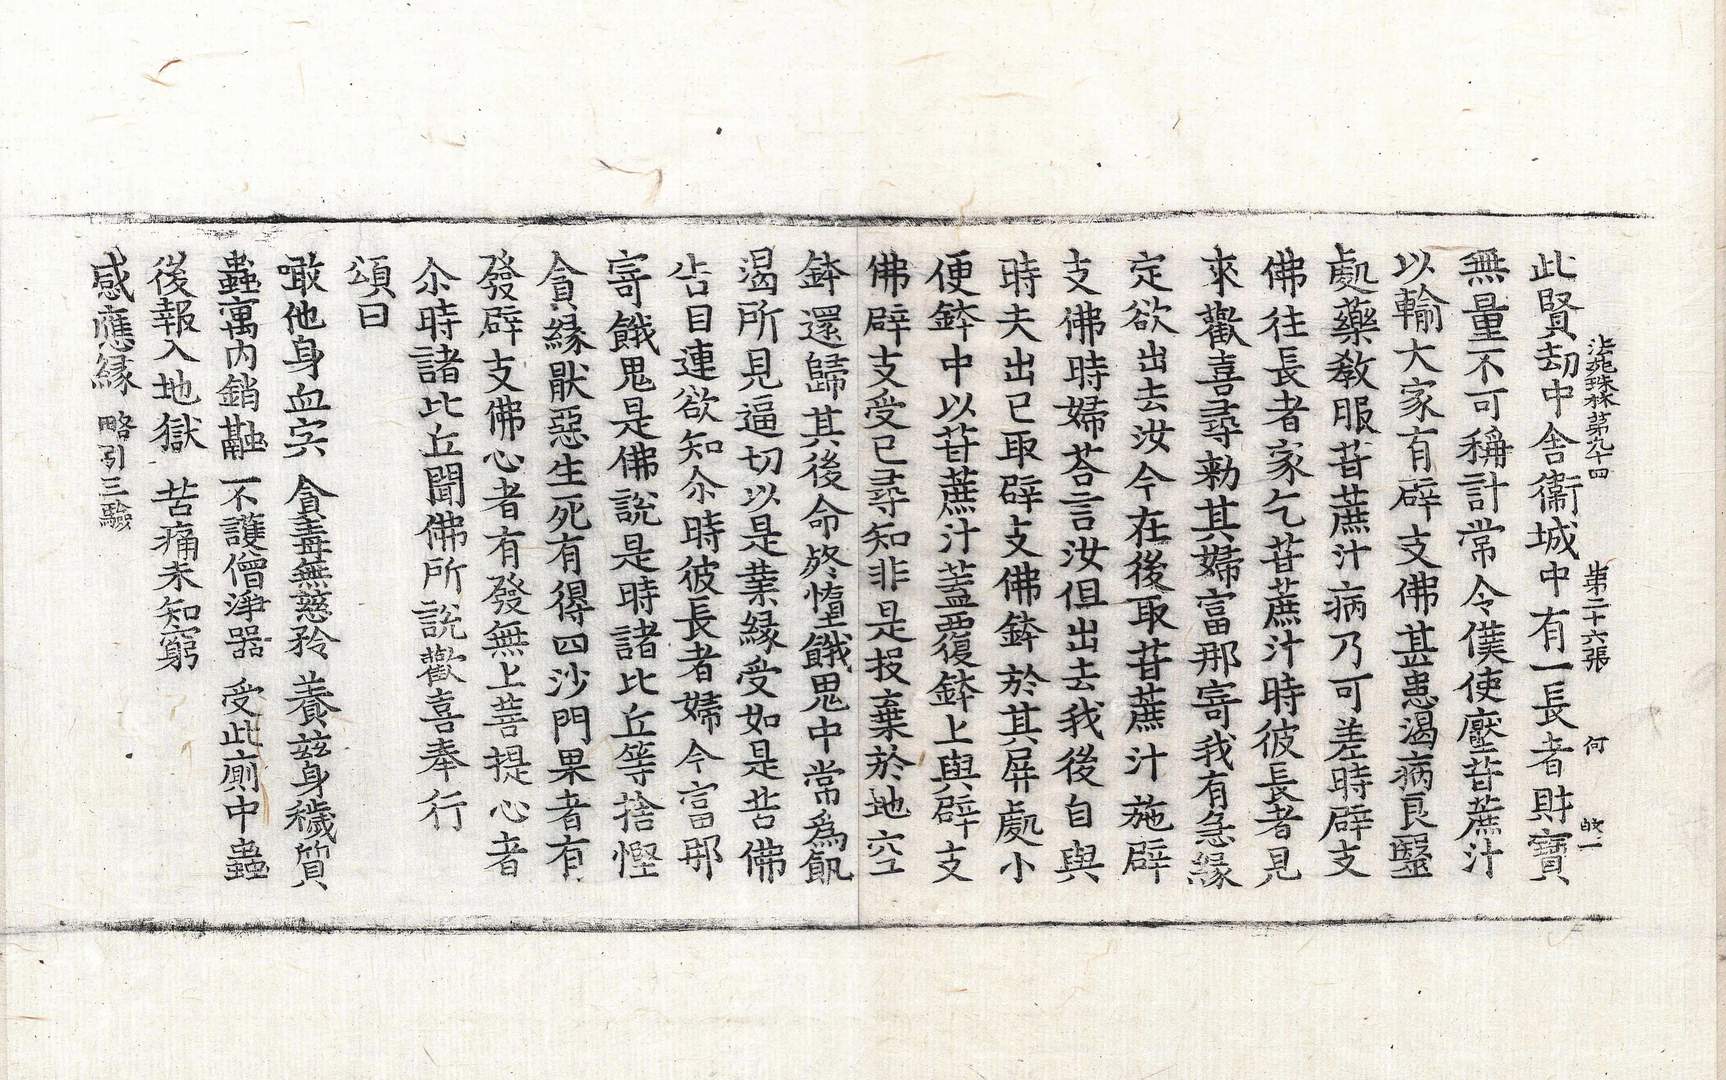 法苑珠林第九十四　第二十六張　何
此賢劫中舍衛城中有一長者財寶
無量不可稱計常令僕使壓苷蔗汁
以輸大家有辟支佛甚患渴病良醫
處藥教服苷蔗汁病乃可差時辟支
佛往長者家乞苷蔗汁時彼長者見
來歡喜尋勑其婦富那寄我有急緣
定欲出去汝今在後取苷蔗汁施辟
支佛時婦荅言汝但出去我後自與
時夫出已取辟支佛鉢於其屏處小
便鉢中以苷蔗汁蓋覆鉢上與辟支
佛辟支受已尋知非是投棄於地空
鉢還歸其後命終墮餓鬼中常為飢
渴所見逼切以是業緣受如是苦佛
告目連欲知尒時彼長者婦今富那
寄餓鬼是佛說是時諸比丘等捨慳
貪緣厭惡生死有得四沙門果者有
發辟支佛心者有發無上菩提心者
尒時諸比丘聞佛所說歡喜奉行
頌曰
噉他身血宍　貪毒無慈矜　養兹身穢質
蟲寓內銷融　不護僧淨器　受此廁中蟲
後報入地獄　苦痛未知窮
感應緣　略引三驗